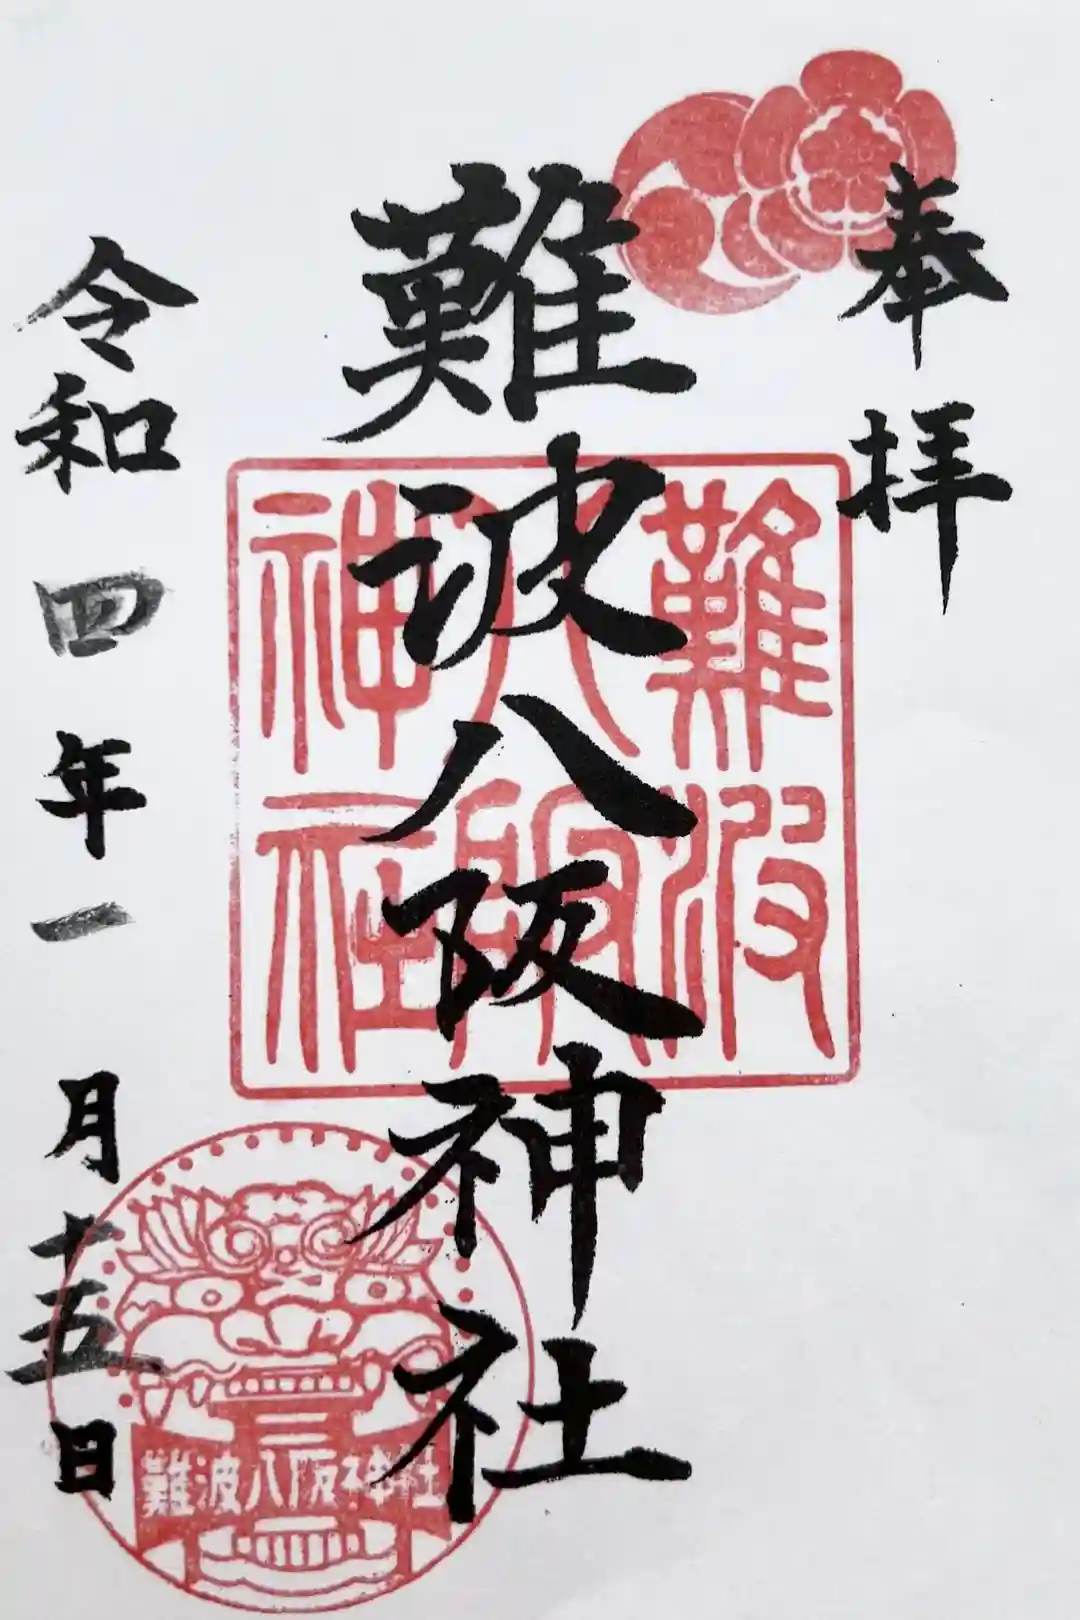 奉拝
難波八阪神社
令和四年一月十五日
難波
八阪
神社
難波八阪神社